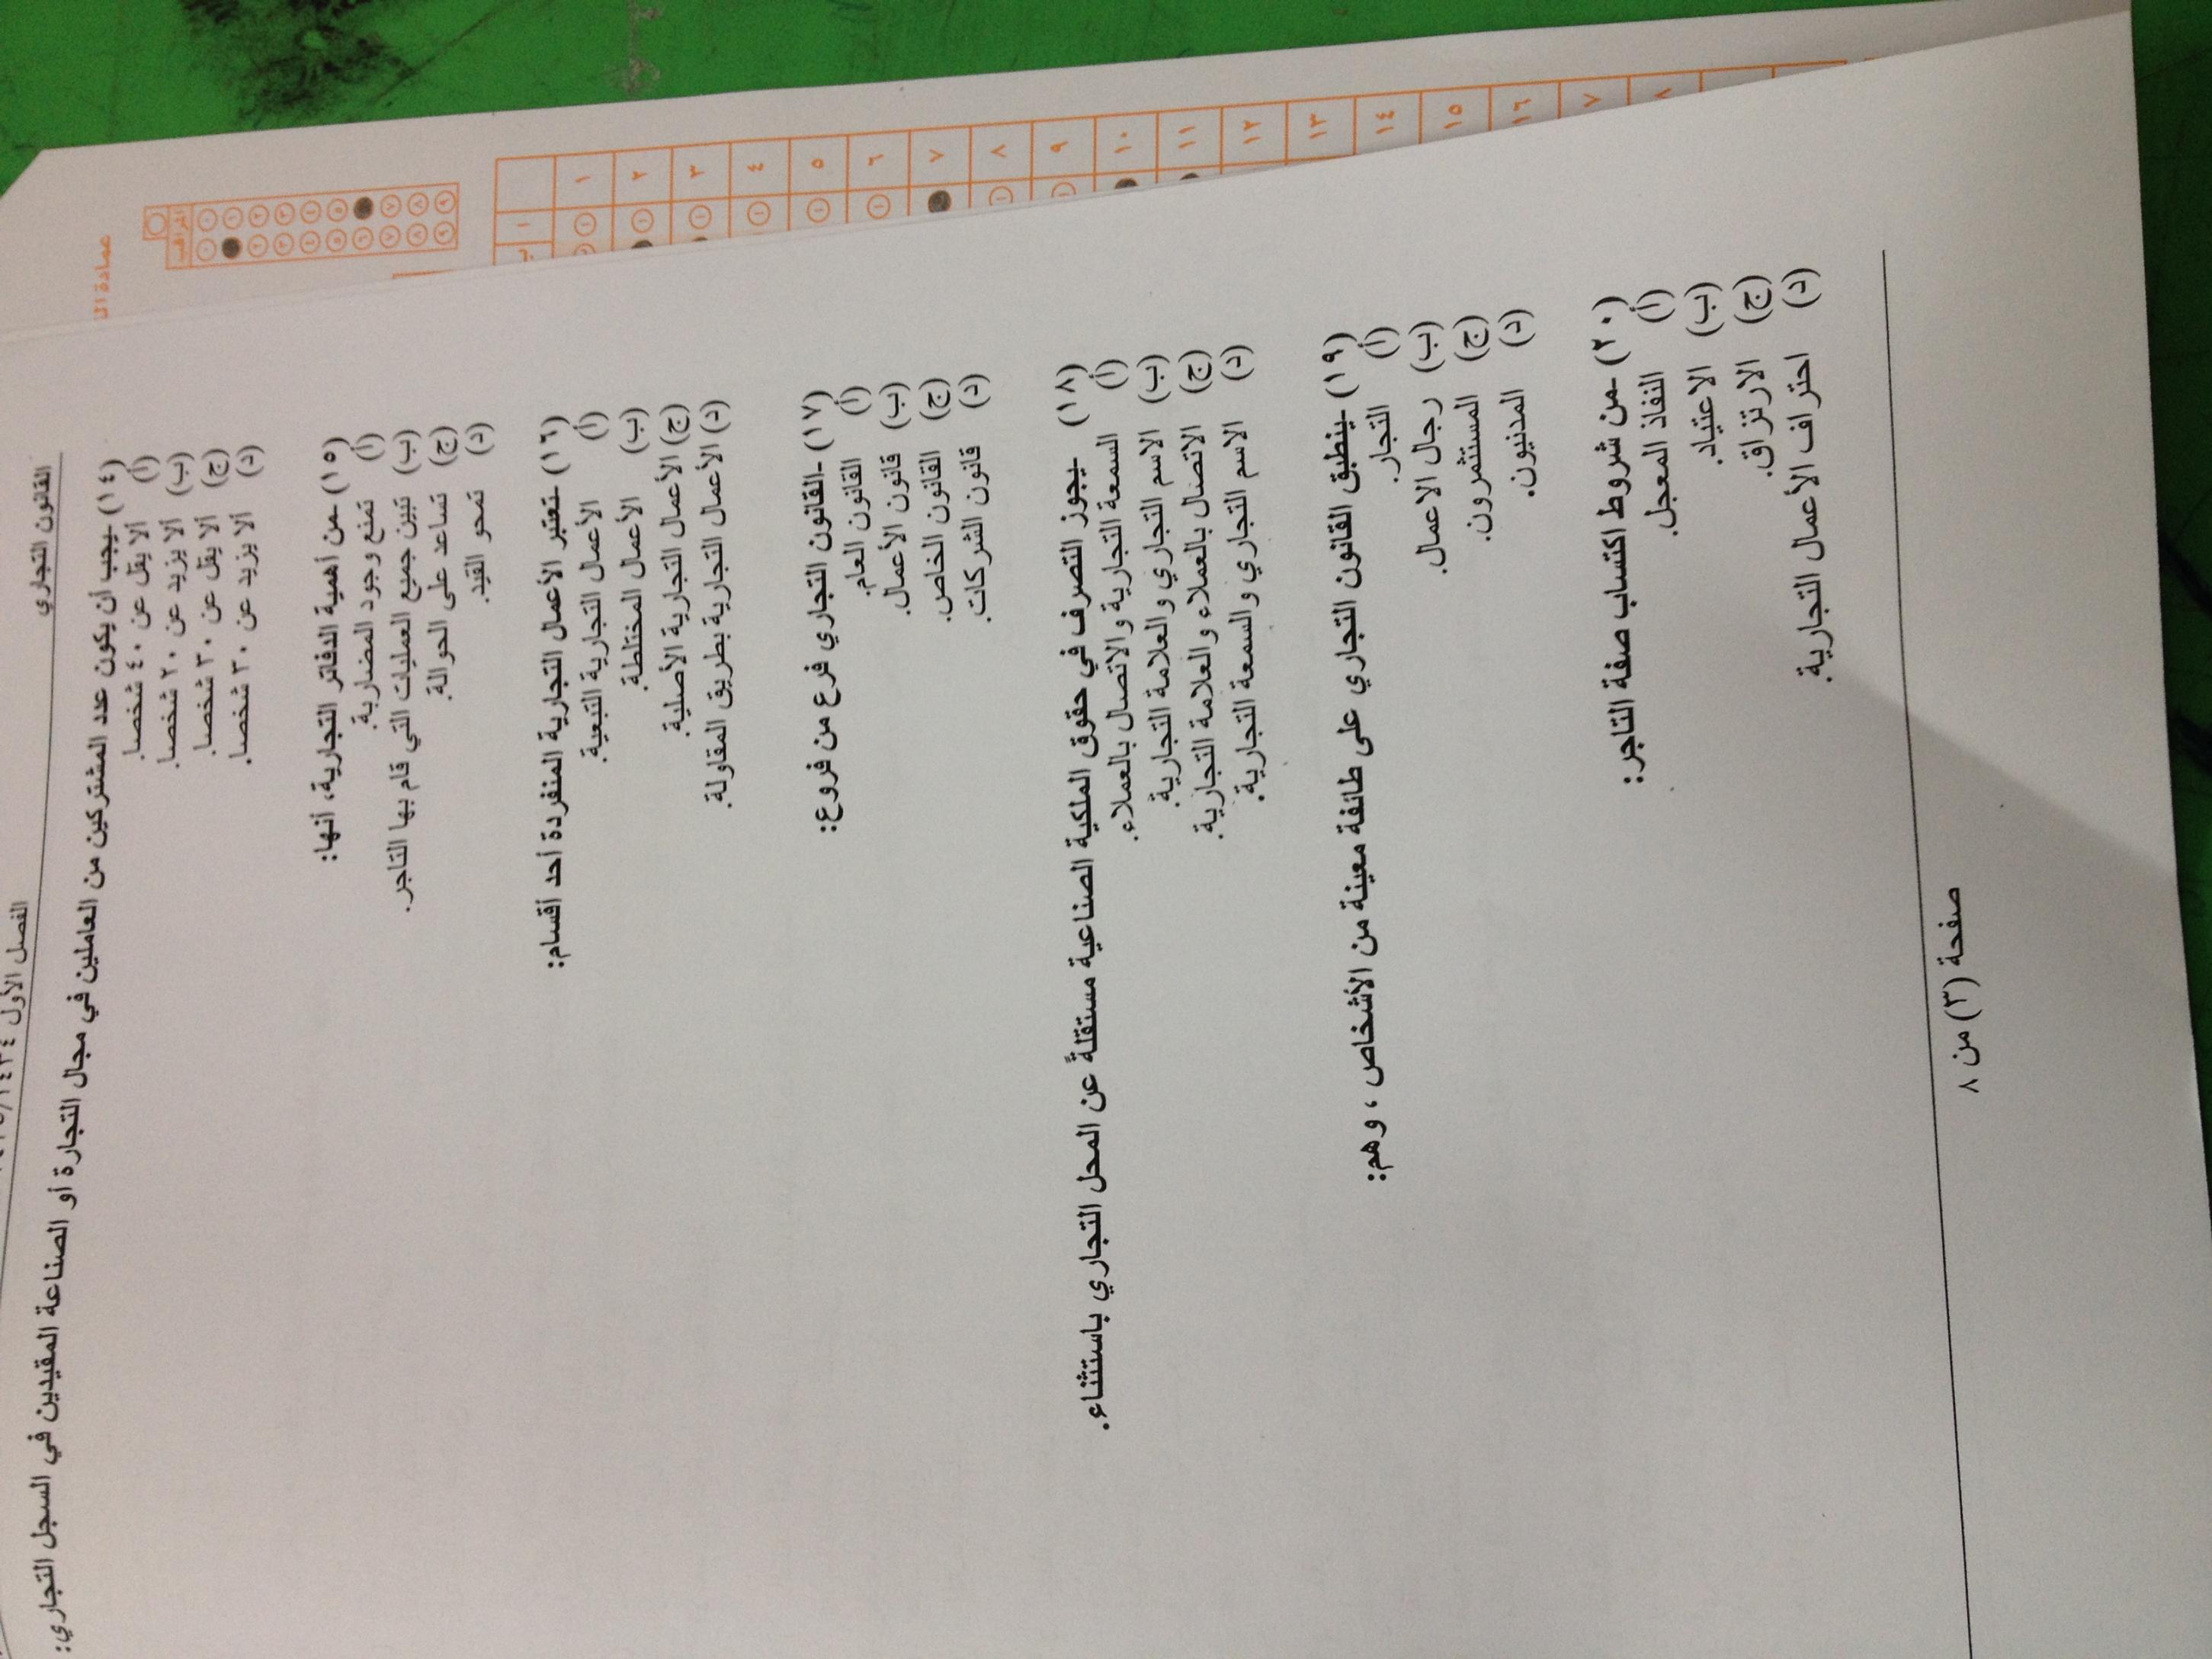 القانون التجاري
الفصل الأول
(١٤) -يجب أن يكون عدد المشتركين من العاملين في مجال التجارة أو الصناعة المقيدين في السجل التجاري:
(أ) ألا يقل عن ٤٠ شخصا.
(ب) ألا يزيد عن ٢٠ شخصا.
(ج) ألا يقل عن ٣٠ شخصا.
(د) ألا يزيد عن ٣٠ شخصا.
(١٥) -من أهمية الدفاتر التجارية، أنها:
(أ) تمنع وجود المضاربة.
(ب) تبين جميع العمليات التي قام بها التاجر.
(ج) تساعد على الحوالة.
(د) تمحو القيد.
(١٦) -تعتبر الأعمال التجارية المنفردة أحد أقسام:
(أ) الأعمال التجارية التبعية.
(ب) الأعمال المختلطة.
(ج) الأعمال التجارية الأصلية.
(د) الأعمال التجارية بطريق المقاولة.
(١٧) -القانون التجاري فرع من فروع:
(أ) القانون العام.
(ب) قانون الأعمال.
(ج) القانون الخاص.
(د) قانون الشركات.
(١٨) -يجوز التصرف في حقوق الملكية الصناعية مستقلةً عن المحل التجاري باستثناء.
(أ) السمعة التجارية والاتصال بالعملاء.
(ب) الاسم التجاري والعلامة التجارية.
(ج) الاتصال بالعملاء والعلامة التجارية.
(د) الاسم التجاري والسمعة التجارية.
(١٩) -ينطبق القانون التجاري على طائفة معينة من الأشخاص ، وهم:
(أ) التجار.
(ب) رجال الاعمال.
(ج) المستثمرون.
(د) المدنيون.
(٢٠) -من شروط اكتساب صفة التاجر:
(أ) النفاذ المعجل.
(ب) الاعتياد.
(ج) الارتزاق.
(د) احتراف الأعمال التجارية.
صفحة (٣) من ٨
عمادة
ا
ب
١
٢
٣
٤
٥
٦
٧
٨
٩
١٠
١١
١٢
١٣
١٤
١٥
١٦
٧
٨